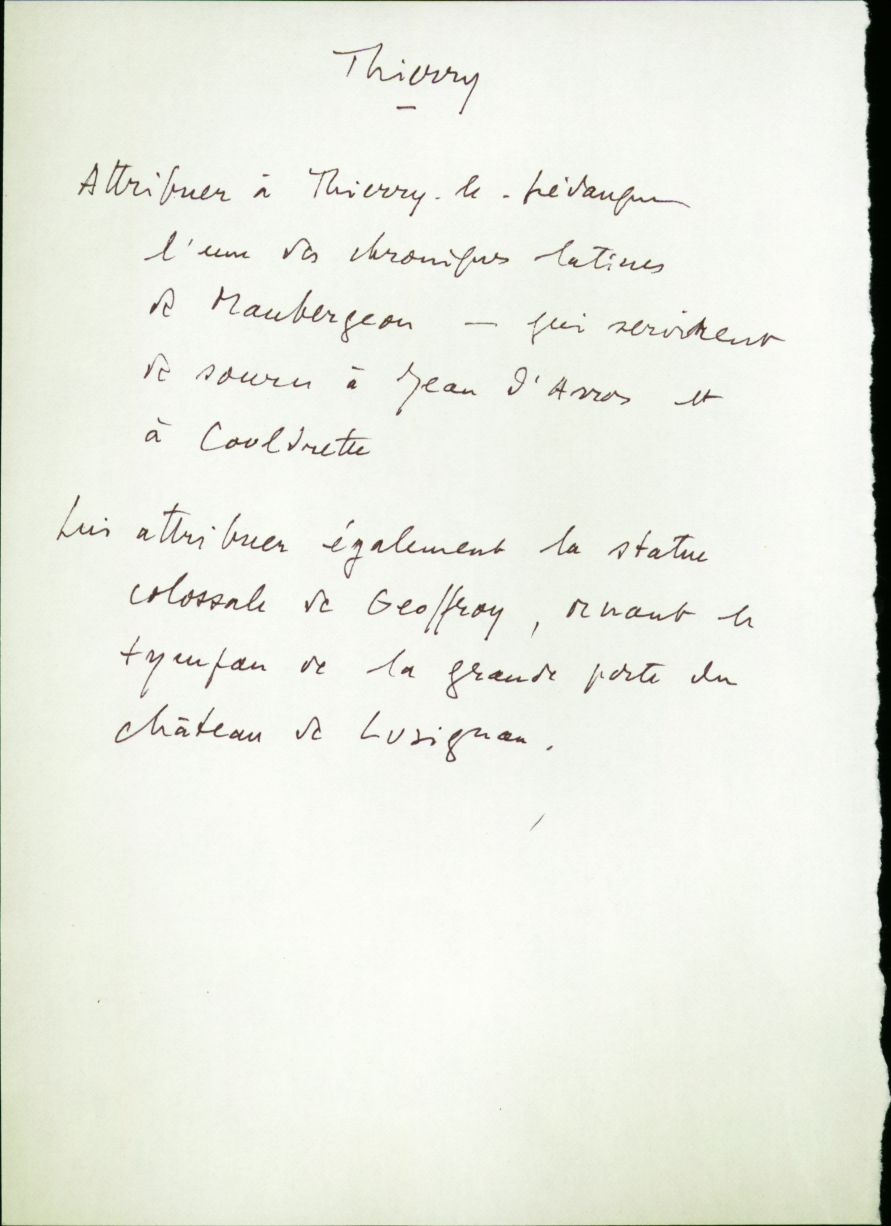 Thierry
Attribuer à Thierry-le-
l'une des chroniques latines
de Maubergeon — qui servirent
de source à Jean d'Arras et
à Couldrette
Lui attribuer également la statue
colossale de Geoffroy, ornant le
tympan de la grande porte du
château de Lusignan.